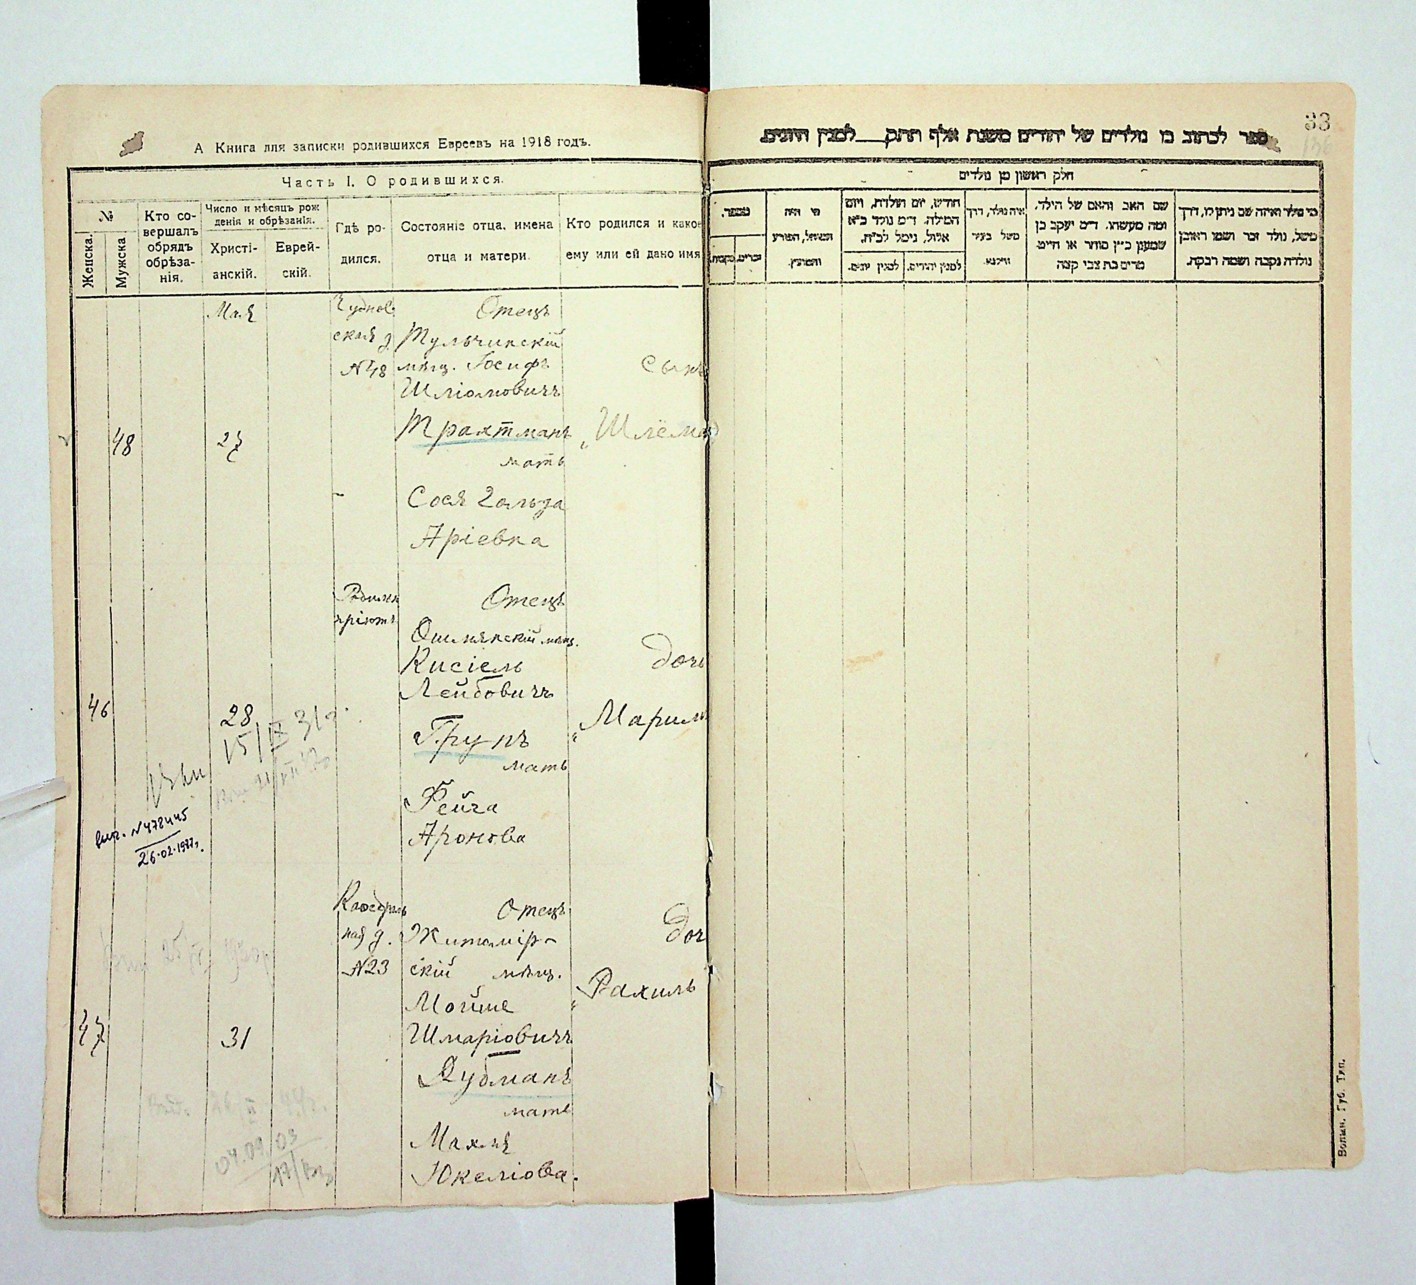 А Книга для записки родившихся Евреевъ на 1918 годъ.
Часть I. О родившихся.
№
Женска.
Мужска
Кто со-
вершалъ
обрядъ
обрѣза-
нія.
Число и мѣсяцъ рож
денія и обрѣзанія.
Христі-
анскій.
Еврей-
скій.
Гдѣ ро-
дился.
Состояніе отца, имена
отца и матери.
Кто родился и какое
ему или ей дано имя
Мая
Чуднов
ская д
№48
Отецъ
Тульчинскій
мѣщ. Іосифъ
Шліомовичъ
Трахтманъ
мать
Сося Гольда
Аріевна
Сынъ
„Шлема
48
27
Родильн
пріютъ
Отецъ
Ошмянскій мѣщ.
Кисіель
Лейбовичъ
Групъ
мать
Фейга
Аронова
дочь
„Марим
46
28
15/IX 31г.
№478445
26.02.1977г.
Каѳедраль
ная д.
№23
Отецъ
Житомір-
скій мѣщ.
Мойше
Шмаріовичъ
Дубманъ
мать
Махля
Юкеліова.
доч
„Рахиль
47
31
04.09.03
ספר לכתוב בו נולדים של יהודים משנת אלף תתק___ למנין היונים
33
136
חלק ראשון מן נולדים
נומבר.
זכרים.
נקבות.
מי היה
המוהל, הפורע
והמוצץ.
חודש, יום הולדת, ויום
המילה. ד״מ נולד כ״א
אלול, נימל לכ״ח.
למנין יונים.
למנין יהודים.
איה נולד, דרך
משל בעיר
ווילנא.
שם האב והאם של הילד,
ומה מעשהו. ד״מ יעקב בן
שמעון כ״ץ סוחר או חייט,
מרים בת צבי קצה
מי נולד ואיזה שם ניתן לו, דרך
משל, נולד זכר ושמו ראובן
נולדה נקבה ושמה רבקה.
Волын. Губ. Тип.